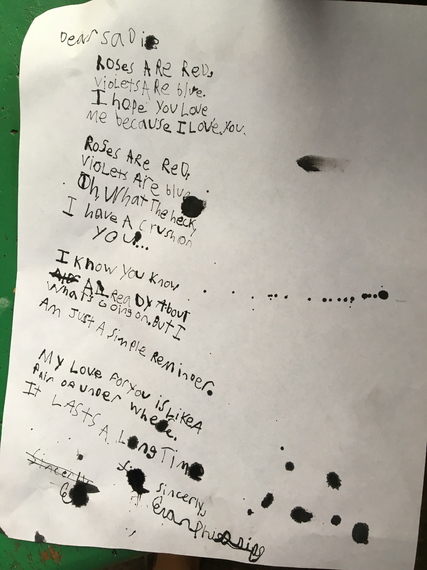 Dear Sadie
Roses ARe ReD,
violets ARe blue.
I hope you Love
me because I Love you.
Roses ARe ReD,
violets Are blue
Oh, What The heck,
I have A crush on
you...
I know you know
All ReaDy About
what's Going on, But I
Am Just A Simple Reminder.
My Love for you is Like A
Pair of under where.
It LASTS A Long Time
Sincerly
sincerly,